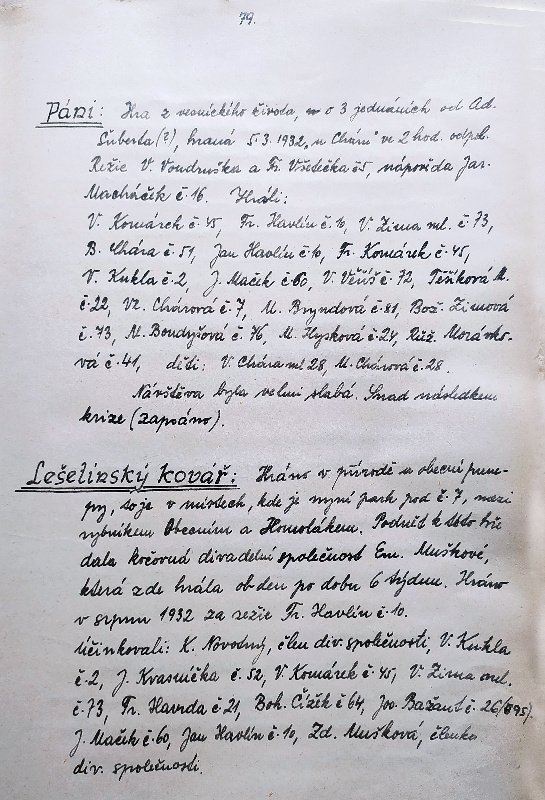 79.
Páni: Hra z vesnického života, o 3 jednáních od Ad.
Šuberta (?), hraná 5.3.1932 „u Chárů" ve 2 hod. odpol.
Režie V. Voudruška a Fr. Všetečka č5, nápověda Jar.
Macháček č.16. Hráli:
V. Komárek č 45, Fr. Havlín č.10, V. Zima ml. č 73,
B. Chára č.51, Jan Havlín č.10, Fr. Komárek č.45,
V. Kukla č.2, J. Mačík č.60, V. Věříš č.72, Těšíková M.
č.22, Vl. Chárová č.7, M. Bryndová č.81, Bož. Zimová
č.73, M. Boudyšová č.76, M. Hysková č.24, Růž. Morávko-
vá č.41, děti: V. Chára ml 28, M. Chárová č.28.
Návštěva byla velmi slabá. Snad následkem
krize (zapsáno).
Lešetínský kovář: Hráno v přírodě u obecní pum-
py, to je v místech, kde je nyní park pod č.7, mezi
rybníkem Obecním a Homolákem. Podnět k této hře
dala kočovná divadelní společnost Em. Muškové,
která zde hrála ob den po dobu 6 týdnů. Hráno
v srpnu 1932 za režie Fr. Havlín č.10.
Účinkovali: K. Novotný, člen div. společnosti, V. Kukla
č.2, J. Kvasnička č.52, V. Komárek č.45, V. Zima ml.
č.73, Fr. Havrda č.21, Boh. Čížek č 64, Jos. Bažant č.26/(895).
J. Mačík č.60, Jan Havlín č.10, Zd. Mušková, členka
div. společnosti.